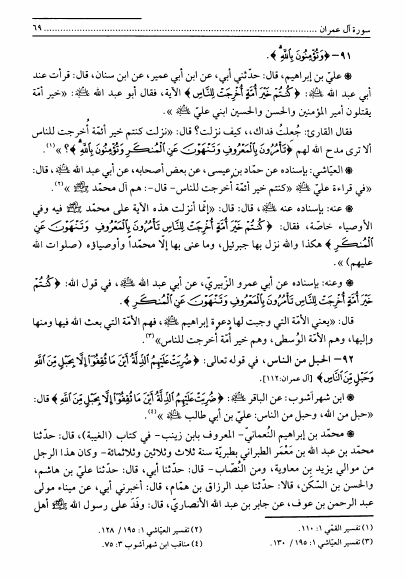 سورة آل عمران ........ ٦٩
٩١ - ﴿وَتُؤْمِنُونَ بِاللَّهِ﴾.
❋ عليّ بن إبراهيم، قال: حدّثني أبي، عن ابن أبي عمير، عن ابن سنان، قال: قرأت عند
أبي عبد الله: ﴿كُنْتُمْ خَيْرَ أُمَّةٍ أُخْرِجَتْ لِلنَّاسِ﴾ الآية، فقال أبو عبد الله: «خير أمّة
يقتلون أمير المؤمنين والحسن والحسين ابني عليّ»
فقال القارئ: جُعلتُ فداك، كيف نزلت؟ قال: «نزلت كنتم خير أئمّة أُخرجت للناس
ألا ترى مدح الله لهم ﴿تَأْمُرُونَ بِالْمَعْرُوفِ وَتَنْهَوْنَ عَنِ الْمُنْكَرِ وَتُؤْمِنُونَ بِاللَّهِ﴾؟»(١).
❋ العيّاشي: بإسناده عن حمّاد بن عيسى، عن بعض أصحابه، عن أبي عبد الله، قال:
«في قراءة عليّ «كنتم خير أئمّة أُخرجت للناس - قال -: هم آل محمّد»(٢).
❋ عنه: بإسناده عنه، قال: قال: «إنّما أُنزلت هذه الآية على محمّد فيه وفي
الأوصياء خاصّة، فقال: ﴿كُنْتُمْ خَيْرَ أُمَّةٍ أُخْرِجَتْ لِلنَّاسِ تَأْمُرُونَ بِالْمَعْرُوفِ وَتَنْهَوْنَ عَنِ
الْمُنْكَرِ﴾ هكذا والله نزل بها جبرئيل، وما عنى بها إلّا محمّداً وأوصياؤه (صلوات الله
عليهم)».
❋ وعنه: بإسناده عن أبي عمرو الزّبيري، عن أبي عبد الله، في قول الله: ﴿كُنْتُمْ
خَيْرَ أُمَّةٍ أُخْرِجَتْ لِلنَّاسِ تَأْمُرُونَ بِالْمَعْرُوفِ وَتَنْهَوْنَ عَنِ الْمُنْكَرِ﴾.
قال: «يعني الأمّة التي وجبت لها دعوة إبراهيم، فهم الأمّة التي بعث الله فيها ومنها
وإليها، وهم الأمّة الوسطى، وهم خير أمّة أُخرجت للناس»(٣).
٩٢ - الحبل من الناس، في قوله تعالى: ﴿ضُرِبَتْ عَلَيْهِمُ الذِّلَّةُ أَيْنَ مَا ثُقِفُوا إِلَّا بِحَبْلٍ مِنَ اللَّهِ
وَحَبْلٍ مِنَ النَّاسِ﴾ [آل عمران: ١١٢].
❋ ابن شهرآشوب: عن الباقر: ﴿ضُرِبَتْ عَلَيْهِمُ الذِّلَّةُ أَيْنَ مَا ثُقِفُوا إِلَّا بِحَبْلٍ مِنَ اللَّهِ﴾ قال:
«حبل من الله، وحبل من الناس: عليّ بن أبي طالب»(٤).
❋ محمّد بن إبراهيم النُعمانيّ - المعروف بابن زينب - في كتاب (الغيبة)، قال: حدّثنا
محمّد بن عبد الله بن مَعْمَر الطبراني بطبريّة سنة ثلاث وثلاثين وثلاثمائة - وكان هذا الرجل
من موالي يزيد بن معاوية، ومن النُّصاب - قال: حدّثنا أبي، قال: حدّثنا عليّ بن هاشم،
والحسن بن السّكَن، قالا: حدّثنا عبد الرزاق بن همّام، قال: أخبرني أبي، عن ميناء مولى
عبد الرحمن بن عوف، عن جابر بن عبد الله الأنصاري، قال: وفدَ على رسول الله أهل
(١) تفسير القمّي ١: ١١٠.
(٢) تفسير العيّاشي ١: ١٩٥/ ١٢٨.
(٣) تفسير العيّاشي ١: ١٩٥/ ١٣٠.
(٤) مناقب ابن شهرآشوب ٣: ٧٥.